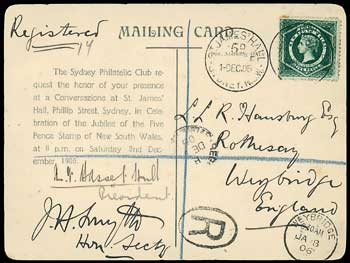 Registered
MAILING CARD
The Sydney Philatelic Club re-
quest the honor of your presence
at a Conversazione at St. James'
Hall, Phillip Street, Sydney, in Cele-
bration of the Jubilee of the Five
Pence Stamp of New South Wales,
at 8 p.m. on Saturday 2nd Dec-
ember, 1905.
President
Hon Secty
ST JAMES HALL
1-DEC.05
L. L. R. Hausburg Esq
Rothesay
Weybridge
England
R
WEYBRIDGE
JA 8
06